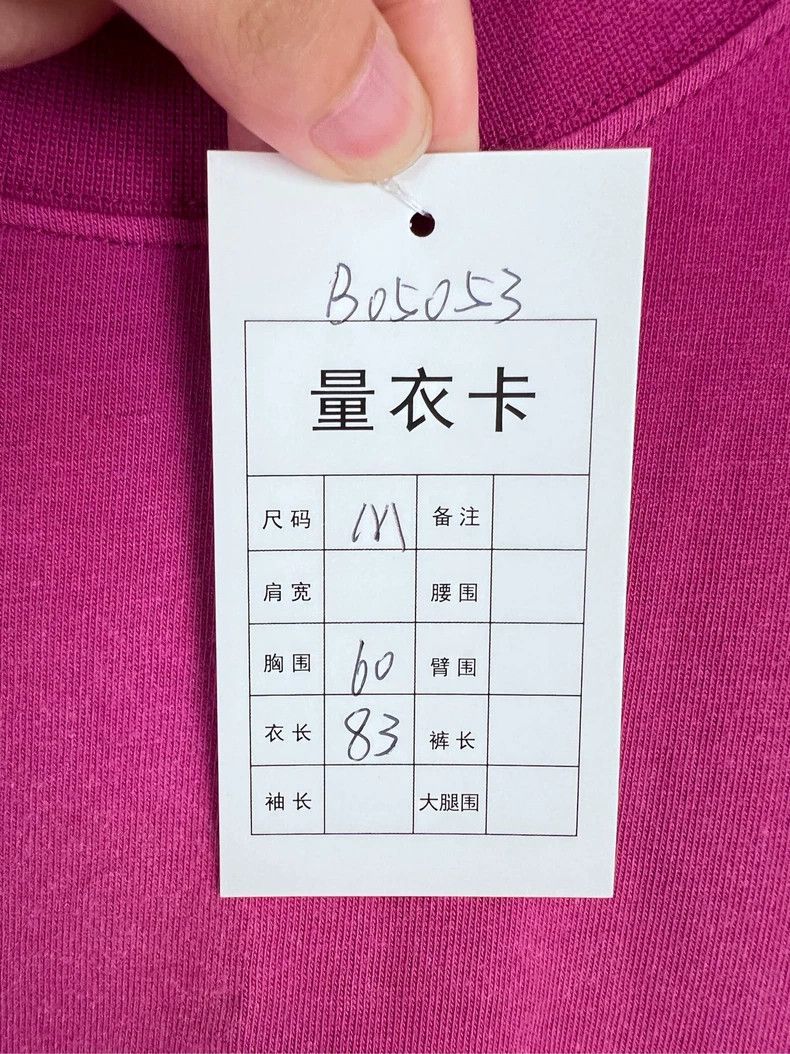 B05053
量衣卡
尺码 M 备注
肩宽 腰围
胸围 60 臂围
衣长 83 裤长
袖长 大腿围